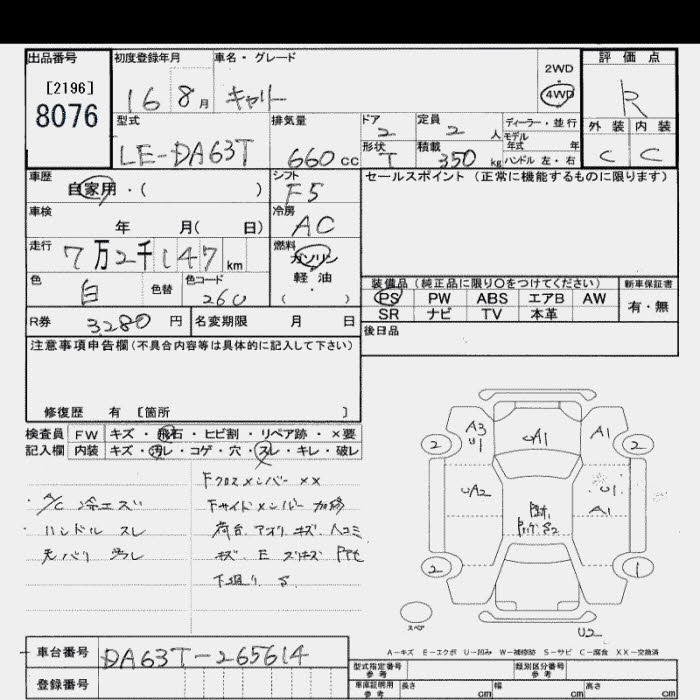 出品番号 初度登録年月 車名・グレード 2WD 評価点
[2196] 16 8月 キャリー 4WD R
8076
型式 排気量 ドア 定員 ディーラー・並行 外装 内装
2 2人 モデル年式 年
LE-DA63T 660cc 形状 積載 ハンドル 左・右 C C
T 350kg
車歴 シフト セールスポイント (正常に機能するものに限ります)
自家用・( ) F5
車検 冷房
年 月( 日) AC
走行 燃料
7万2千147km ガソリン
軽・油
色 色替 色コード ・( )
白 260
装備品(純正品に限り〇をつけてください) 新車保証書
PS PW ABS エアB AW 有・無
SR ナビ TV 本革
R券 3,280円 名変期限 月 日 後日品
注意事項申告欄(不具合内容等は具体的に記入して下さい)
修復歴 有 [箇所 ]
検査員 FW キズ・飛石・ヒビ割・リペア跡・×要
記入欄 内装 キズ・汚レ・コゲ・穴・スレ・キレ・破レ
A3 U1 UA1 A1
2 2
UA2 U1 A1
2 1
スペア
U2
Fクロスメンバー ××
・A/C 冷エズ Fサイドメンバー 加修
・ハンドル スレ 荷台 アオリ キズ 凹コミ
キズ E スリキズ
下廻り S
A-キズ E-エクボ U-凹み W-補修跡 S-サビ C-腐食 XX-交換済
車台番号 DA63T-265614
登録番号
型式指定番号 参考 類別区分番号 参考
車庫証明用 参考 長さ cm 幅 cm 高さ cm